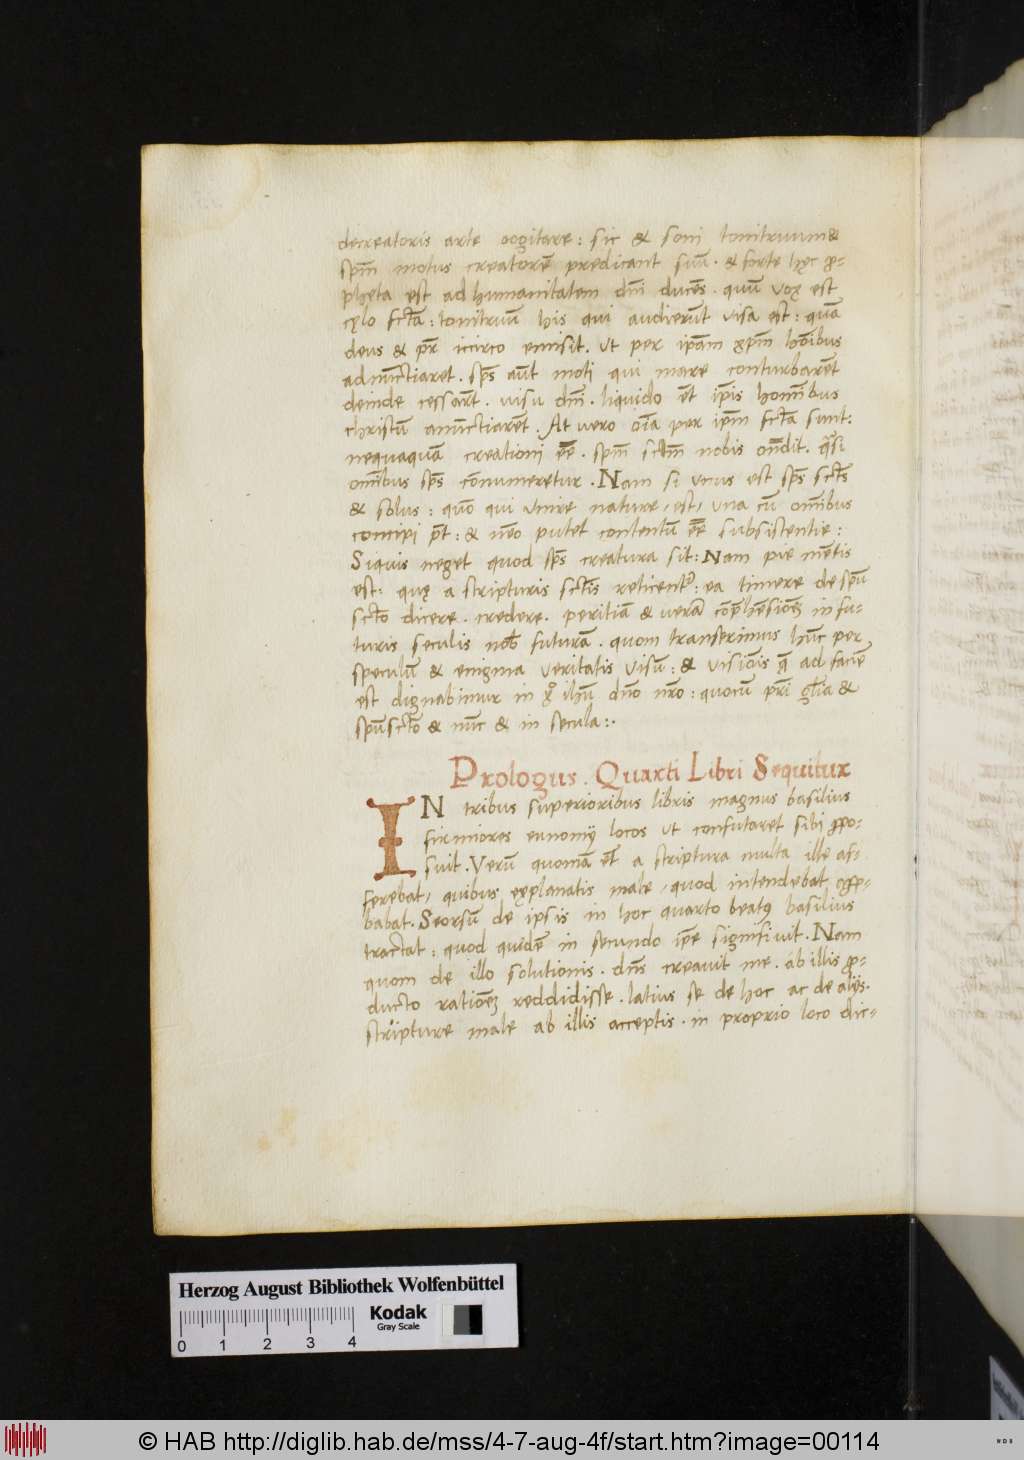 decreatoris arte cogitare: sic & soni tonitruum &
sp̄m motus creatorē predicant suū. & forte hęc ꝓ-
phęta est ad humanitatem dn̄i ducēs. quū vox est
cęlo fct̄a: tonitruū his qui audierūt visa est: quā
deus & pr̄ iccirco emisit. ut per ip̄am xp̄m hōibus
adnūctiaret. sp̄s aūt moti qui mare conturbarēt
deinde cessarūt. uisu dn̄i. liquido ēt ip̄is hom̄ibus
christū anūctiarēt. At uero oīa per ip̄m fct̄a sunt:
nequaquā creationi ēē. sp̄m sct̄m nobis ondit. q̄si
om̄ibus sp̄s cōnumeretur. Nam si unus est sp̄s sct̄s
& solus: quō qui unire nature, est, una cū om̄ibus
concipi p̄t: & neō putet contentū ēē subsistentie:
Siquis neget quod sp̄s creatura sit: Nam pie mētis
est: quę a scripturis sct̄is reticentᷣ: ea timere de sp̄u
sct̄o dicere. credere. peritiā & uerā cōp̄hēsionē in fu-
turis seculis nob̄ futurā. quom transerimus hūc per
speculū & enigma veritatis visū: & visiōis q̄ ad faciē
est dignabimur in xº ihū dn̄o nr̄o: quocū pr̄i gl̄ia &
sp̄usct̄o & nūc & in secula:.
Prologus. Quarti Libri Sequitur
IN tribus superioribus libris magnus basilius
firmiores eunomij locos ut confutaret sibi ꝓpo-
suit. Verū quoniā ēt a scriptura multa ille af-
ferebat, quibus explanatis male, quod intendebat ꝓꝓ-
babat. Seorsū de ipsis in hoc quarto beatꝰ basilius
tractat: quod quidē in secundo ip̄e significuit. Nam
quom de illo solutionis. dn̄s creauit me. ab illis ꝓ-
ducto rationē reddidisse. latius se de hoc ac de alijs.
scripture male ab illis acceptis. in proprio loco dic-
Herzog August Bibliothek Wolfenbüttel
Kodak
Gray Scale
0 1 2 3 4
© HAB http://diglib.hab.de/mss/4-7-aug-4f/start.htm?image=00114